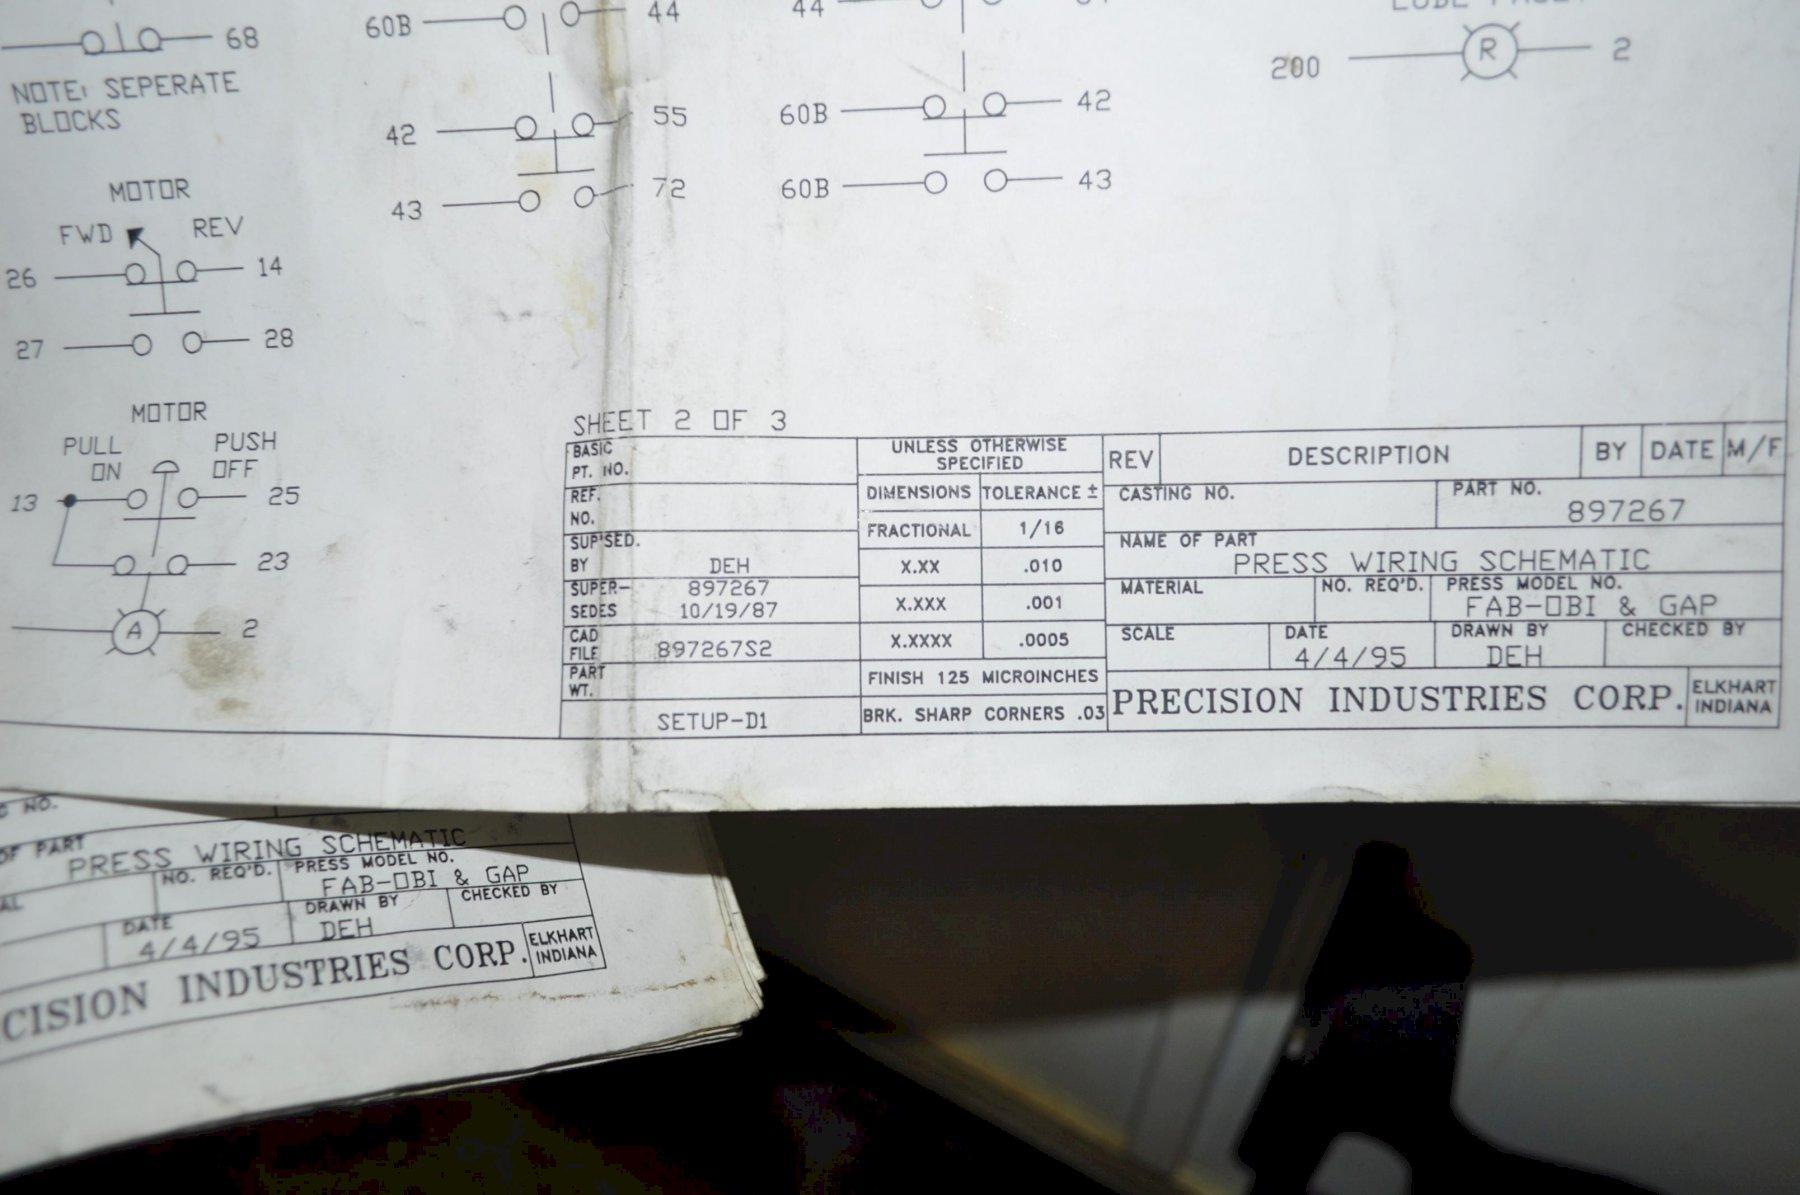 60B 44
44
68
NOTE: SEPERATE
BLOCKS
200 R 2
42 55
60B 42
43 72
60B 43
MOTOR
FWD REV
26 14
27 28
MOTOR
PULL PUSH
ON OFF
13 25
23
A 2
SHEET 2 OF 3
BASIC
PT. NO.
REF.
NO.
SUP'SED.
BY DEH
SUPER- 897267
SEDES 10/19/87
CAD
FILE 897267S2
PART
WT.
SETUP-D1
UNLESS OTHERWISE
SPECIFIED
DIMENSIONS TOLERANCE ±
FRACTIONAL 1/16
X.XX .010
X.XXX .001
X.XXXX .0005
FINISH 125 MICROINCHES
BRK. SHARP CORNERS .03
REV DESCRIPTION BY DATE M/F
CASTING NO. PART NO.
897267
NAME OF PART
PRESS WIRING SCHEMATIC
MATERIAL NO. REQ'D. PRESS MODEL NO.
FAB-OBI & GAP
SCALE DATE DRAWN BY CHECKED BY
4/4/95 DEH
PRECISION INDUSTRIES CORP. ELKHART
INDIANA
NO.
OF PART
PRESS WIRING SCHEMATIC
NO. REQ'D. PRESS MODEL NO.
FAB-OBI & GAP
AL
DATE DRAWN BY CHECKED BY
4/4/95 DEH
CISION INDUSTRIES CORP. ELKHART
INDIANA